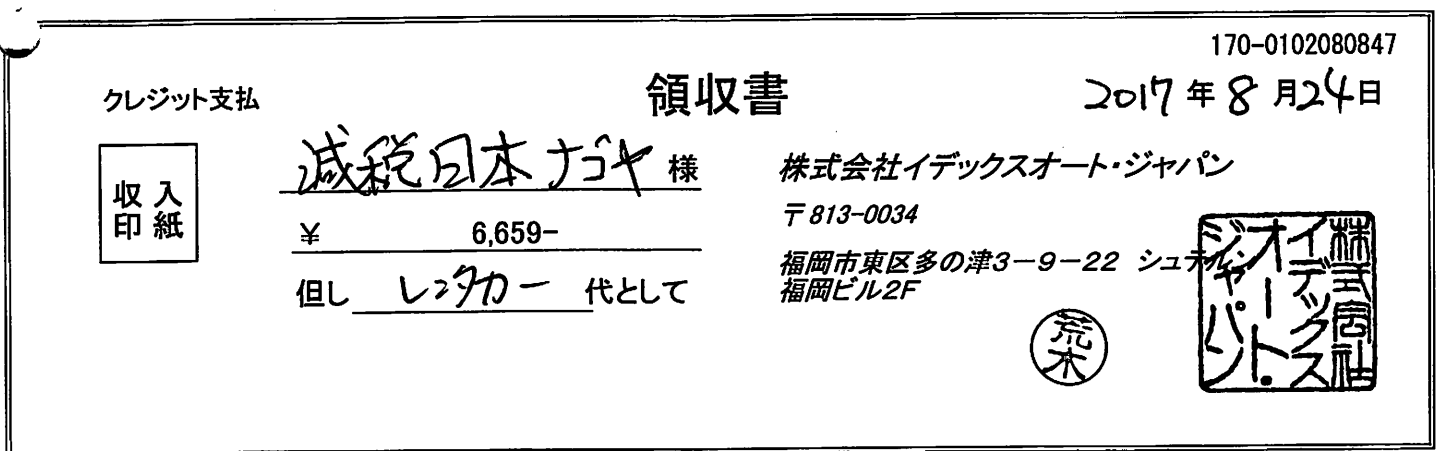 170-0102080847
クレジット支払
領収書
2017年8月24日
収入
印紙
減税日本ナゴヤ様
¥ 6,659-
但し レンタカー 代として
株式会社イデックスオート・ジャパン
〒813-0034
福岡市東区多の津3-9-22 シュテルン
福岡ビル2F
荒木
株式会社
イデックス
オート・
ジャパン